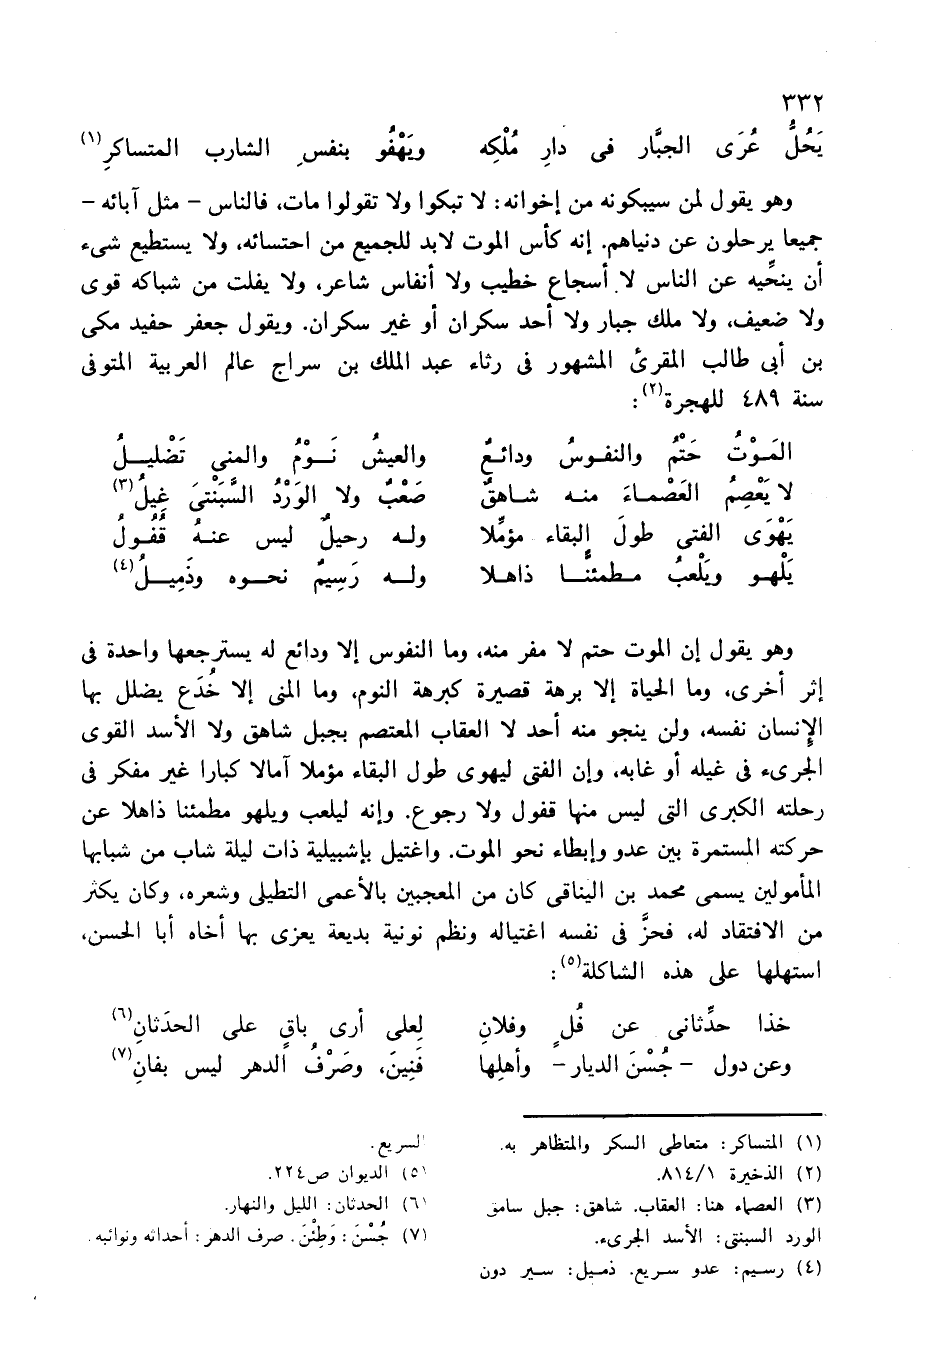 ٣٣٢
يَحُلُّ عُرَى الجبَّار فى دارِ مُلْكِه ويَهْفُو بنفسِ الشارب المتساكرِ(١)
وهو يقول لمن سيبكونه من إخوانه: لا تبكوا ولا تقولوا مات، فالناس – مثل آبائه –
جميعا يرحلون عن دنياهم. إنه كأس الموت لابد للجميع من احتسائه، ولا يستطيع شىء
أن ينحِّيه عن الناس لا أسجاع خطيب ولا أنفاس شاعر، ولا يفلت من شباكه قوى
ولا ضعيف، ولا ملك جبار ولا أحد سكران أو غير سكران. ويقول جعفر حفيد مكى
بن أبى طالب المقرئ المشهور فى رثاء عبد الملك بن سراج عالم العربية المتوفى
سنة ٤٨٩ للهجرة(٢):
المَوْتُ حَتْمٌ والنفوسُ ودائعٌ والعيشُ نَوْمٌ والمنى تَضْليلُ
لا يَعْصِمُ العَصْماءَ منه شاهقٌ صَعْبٌ ولا الوَرْدُ السَّبَنْتىَ غِيلُ(٣)
يَهْوَى الفتى طولَ البقاء مؤمِّلا وله رحيلٌ ليس عنهُ قُفُولُ
يَلْهو ويَلْعبُ مطمئنًّا ذاهلا وله رَسِيمٌ نحوه وذَمِيلُ(٤)
وهو يقول إن الموت حتم لا مفر منه، وما النفوس إلا ودائع له يسترجعها واحدة فى
إثر أخرى، وما الحياة إلا برهة قصيرة كبرهة النوم، وما المنى إلا خُدَع يضلل بها
الإنسان نفسه، ولن ينجو منه أحد لا العقاب المعتصم بجبل شاهق ولا الأسد القوى
الجرىء فى غيله أو غابه، وإن الفتى ليهوى طول البقاء مؤملا آمالا كبارا غير مفكر فى
رحلته الكبرى التى ليس منها قفول ولا رجوع. وإنه ليلعب ويلهو مطمئنا ذاهلا عن
حركته المستمرة بين عدو وإبطاء نحو الموت. واغتيل بإشبيلية ذات ليلة شاب من شبابها
المأمولين يسمى محمد بن اليناقى كان من المعجبين بالأعمى التطيلى وشعره، وكان يكثر
من الافتقاد له، فحزَّ فى نفسه اغتياله ونظم نونية بديعة يعزى بها أخاه أبا الحسن،
استهلها على هذه الشاكلة(٥):
خذا حدِّثانى عن فُلٍ وفلانِ لعلى أرى باقٍ على الحدَثانِ(٦)
وعن دول – جُسْنَ الديار – وأهلِها فَنِينَ، وصَرْفُ الدهر ليس بفانِ(٧)
(١) المتساكر: متعاطى السكر والمتظاهر به.
(٢) الذخيرة ٨١٤/١.
(٣) العصماء هنا: العقاب. شاهق: جبل سامق
الورد السبنتى: الأسد الجرىء.
(٤) رسيم: عدو سريع. ذميل: سير دون
السريع.
(٥) الديوان ص٢٢٤.
(٦) الحدثان: الليل والنهار.
(٧) جُسْنَ: وَطِئْنَ. صرف الدهر: أحداثه ونوائبه.